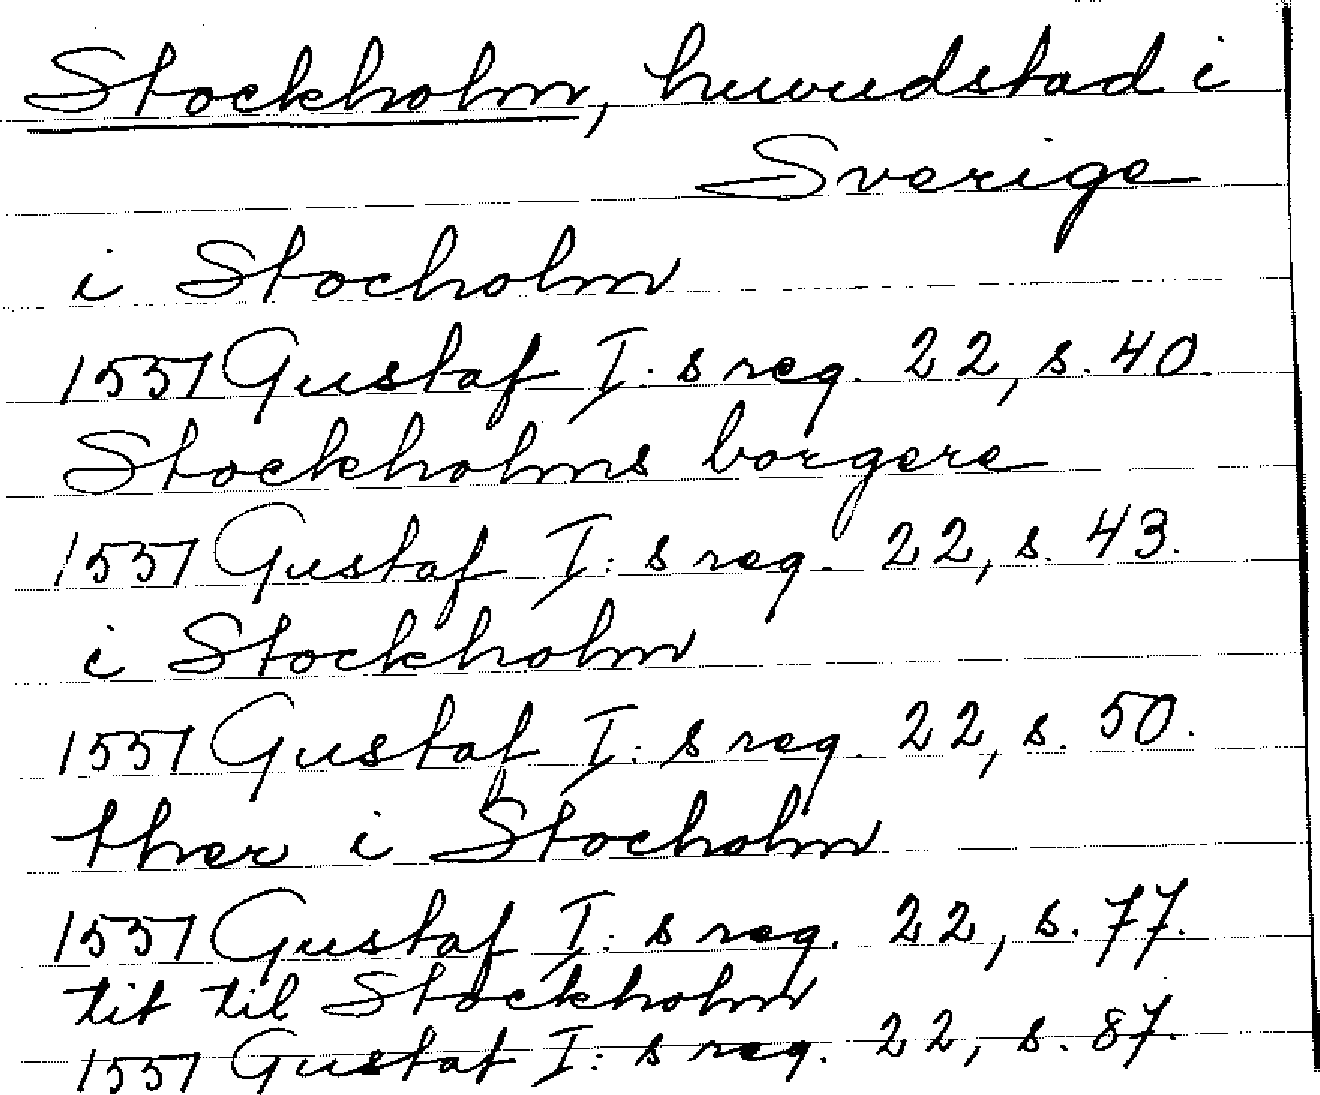 Stockholm, huvudstad i
Sverige
i Stocholm
1551 Gustaf I:s reg. 22, s. 40.
Stockholms borgere
1551 Gustaf I:s reg. 22, s. 43.
i Stockholm
1551 Gustaf I:s reg. 22, s. 50.
ther i Stocholm
1551 Gustaf I:s reg. 22, s. 77.
tit til Stockholm
1551 Gustaf I:s reg. 22, s. 87.